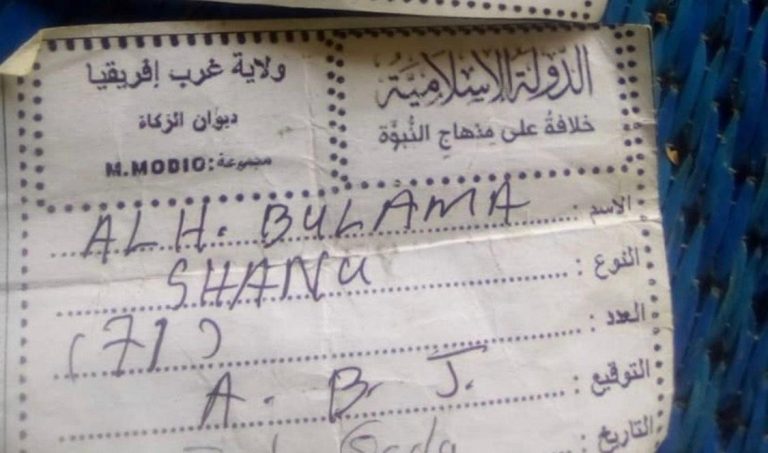 الدولة الإسلامية
خلافة على منهاج النبوة
ولاية غرب إفريقيا
ديوان الزكاة
مجموعة: M.MODIO
الاسم : ALH. BULAMA
النوع : SHANU
العدد : (71)
التوقيع : A. B. J.
التاريخ :